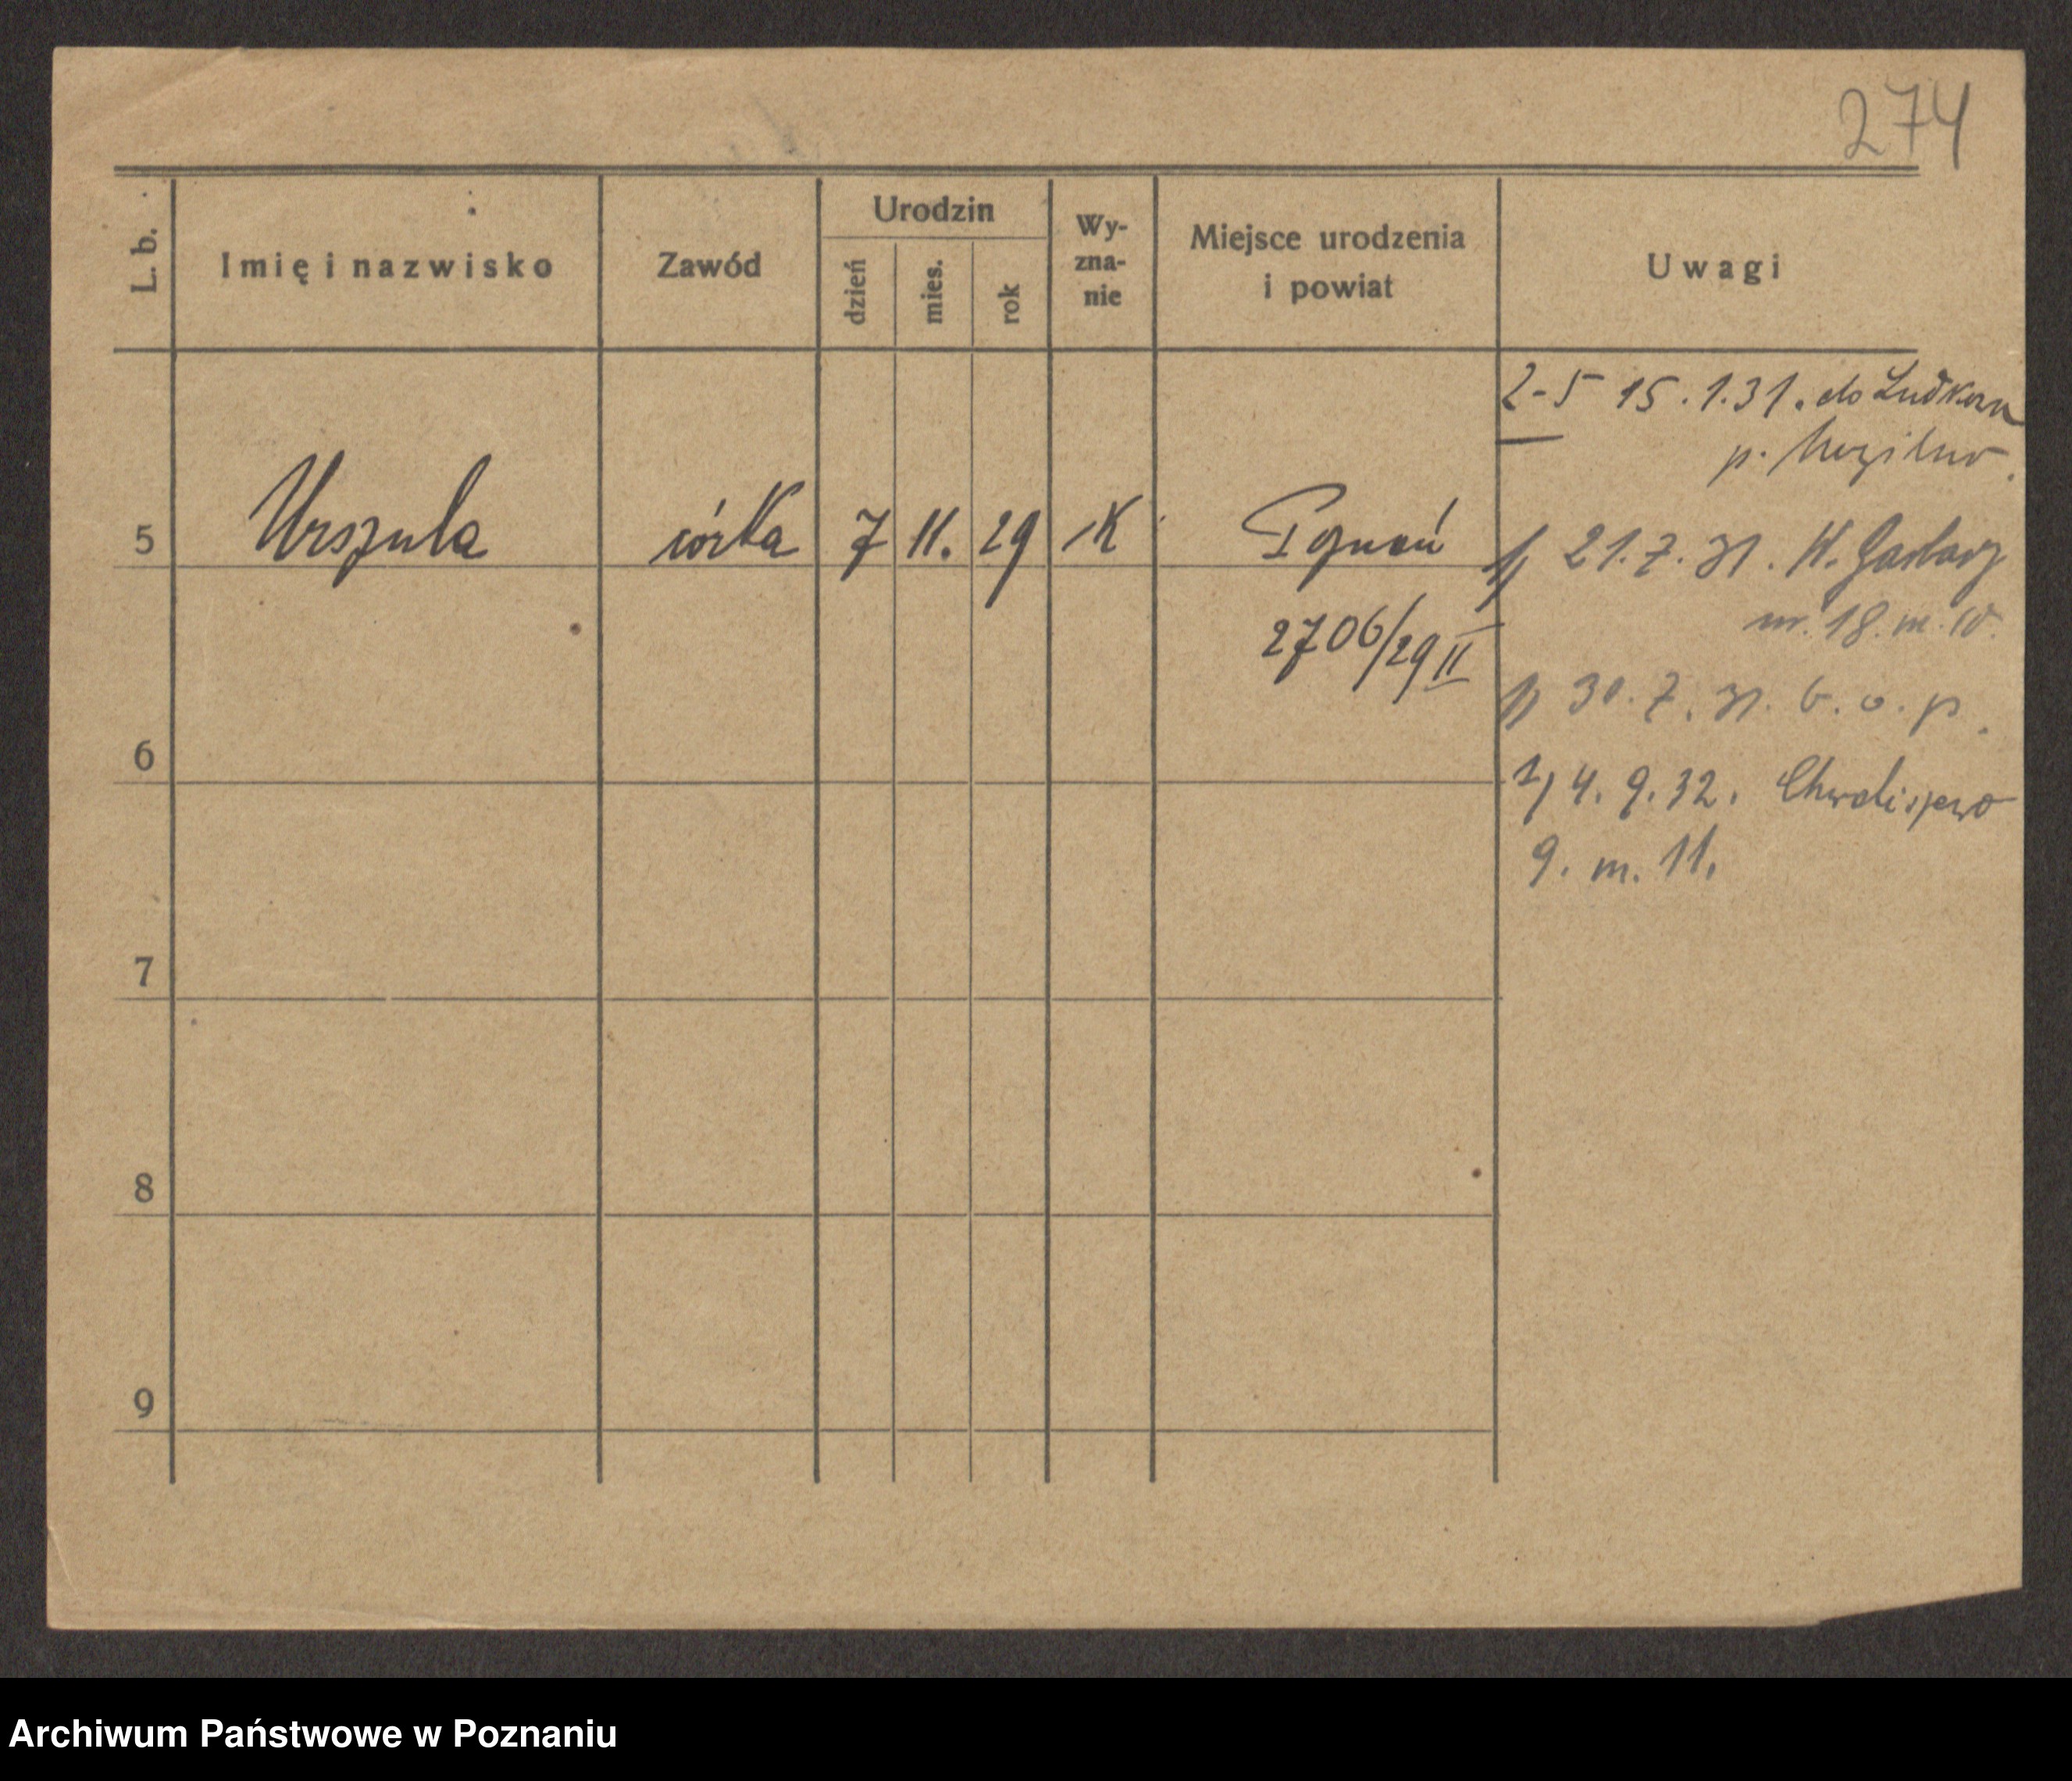 274
L. b.
Imię i nazwisko
Zawód
Urodzin
dzień
mies.
rok
Wy-
zna-
nie
Miejsce urodzenia
i powiat
Uwagi
2-5 15.1.31. do
p.
5 Urszula córka 7 11. 29 K Poznań
1) 21.7.31. W. Garbary
nr. 18. m. 10.
2706/29 II
1) 30.7.31. b. o. p.
6
1) 4.9.32. Chwaliszewo
9. m. 11.
7
8
9
Archiwum Państwowe w Poznaniu